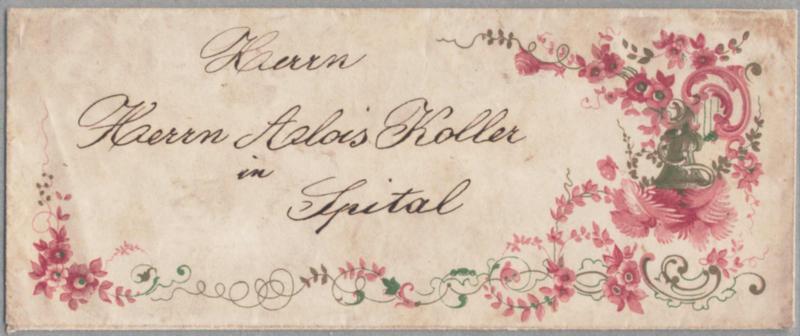 Herrn
Herrn Alois Koller
in
Spital